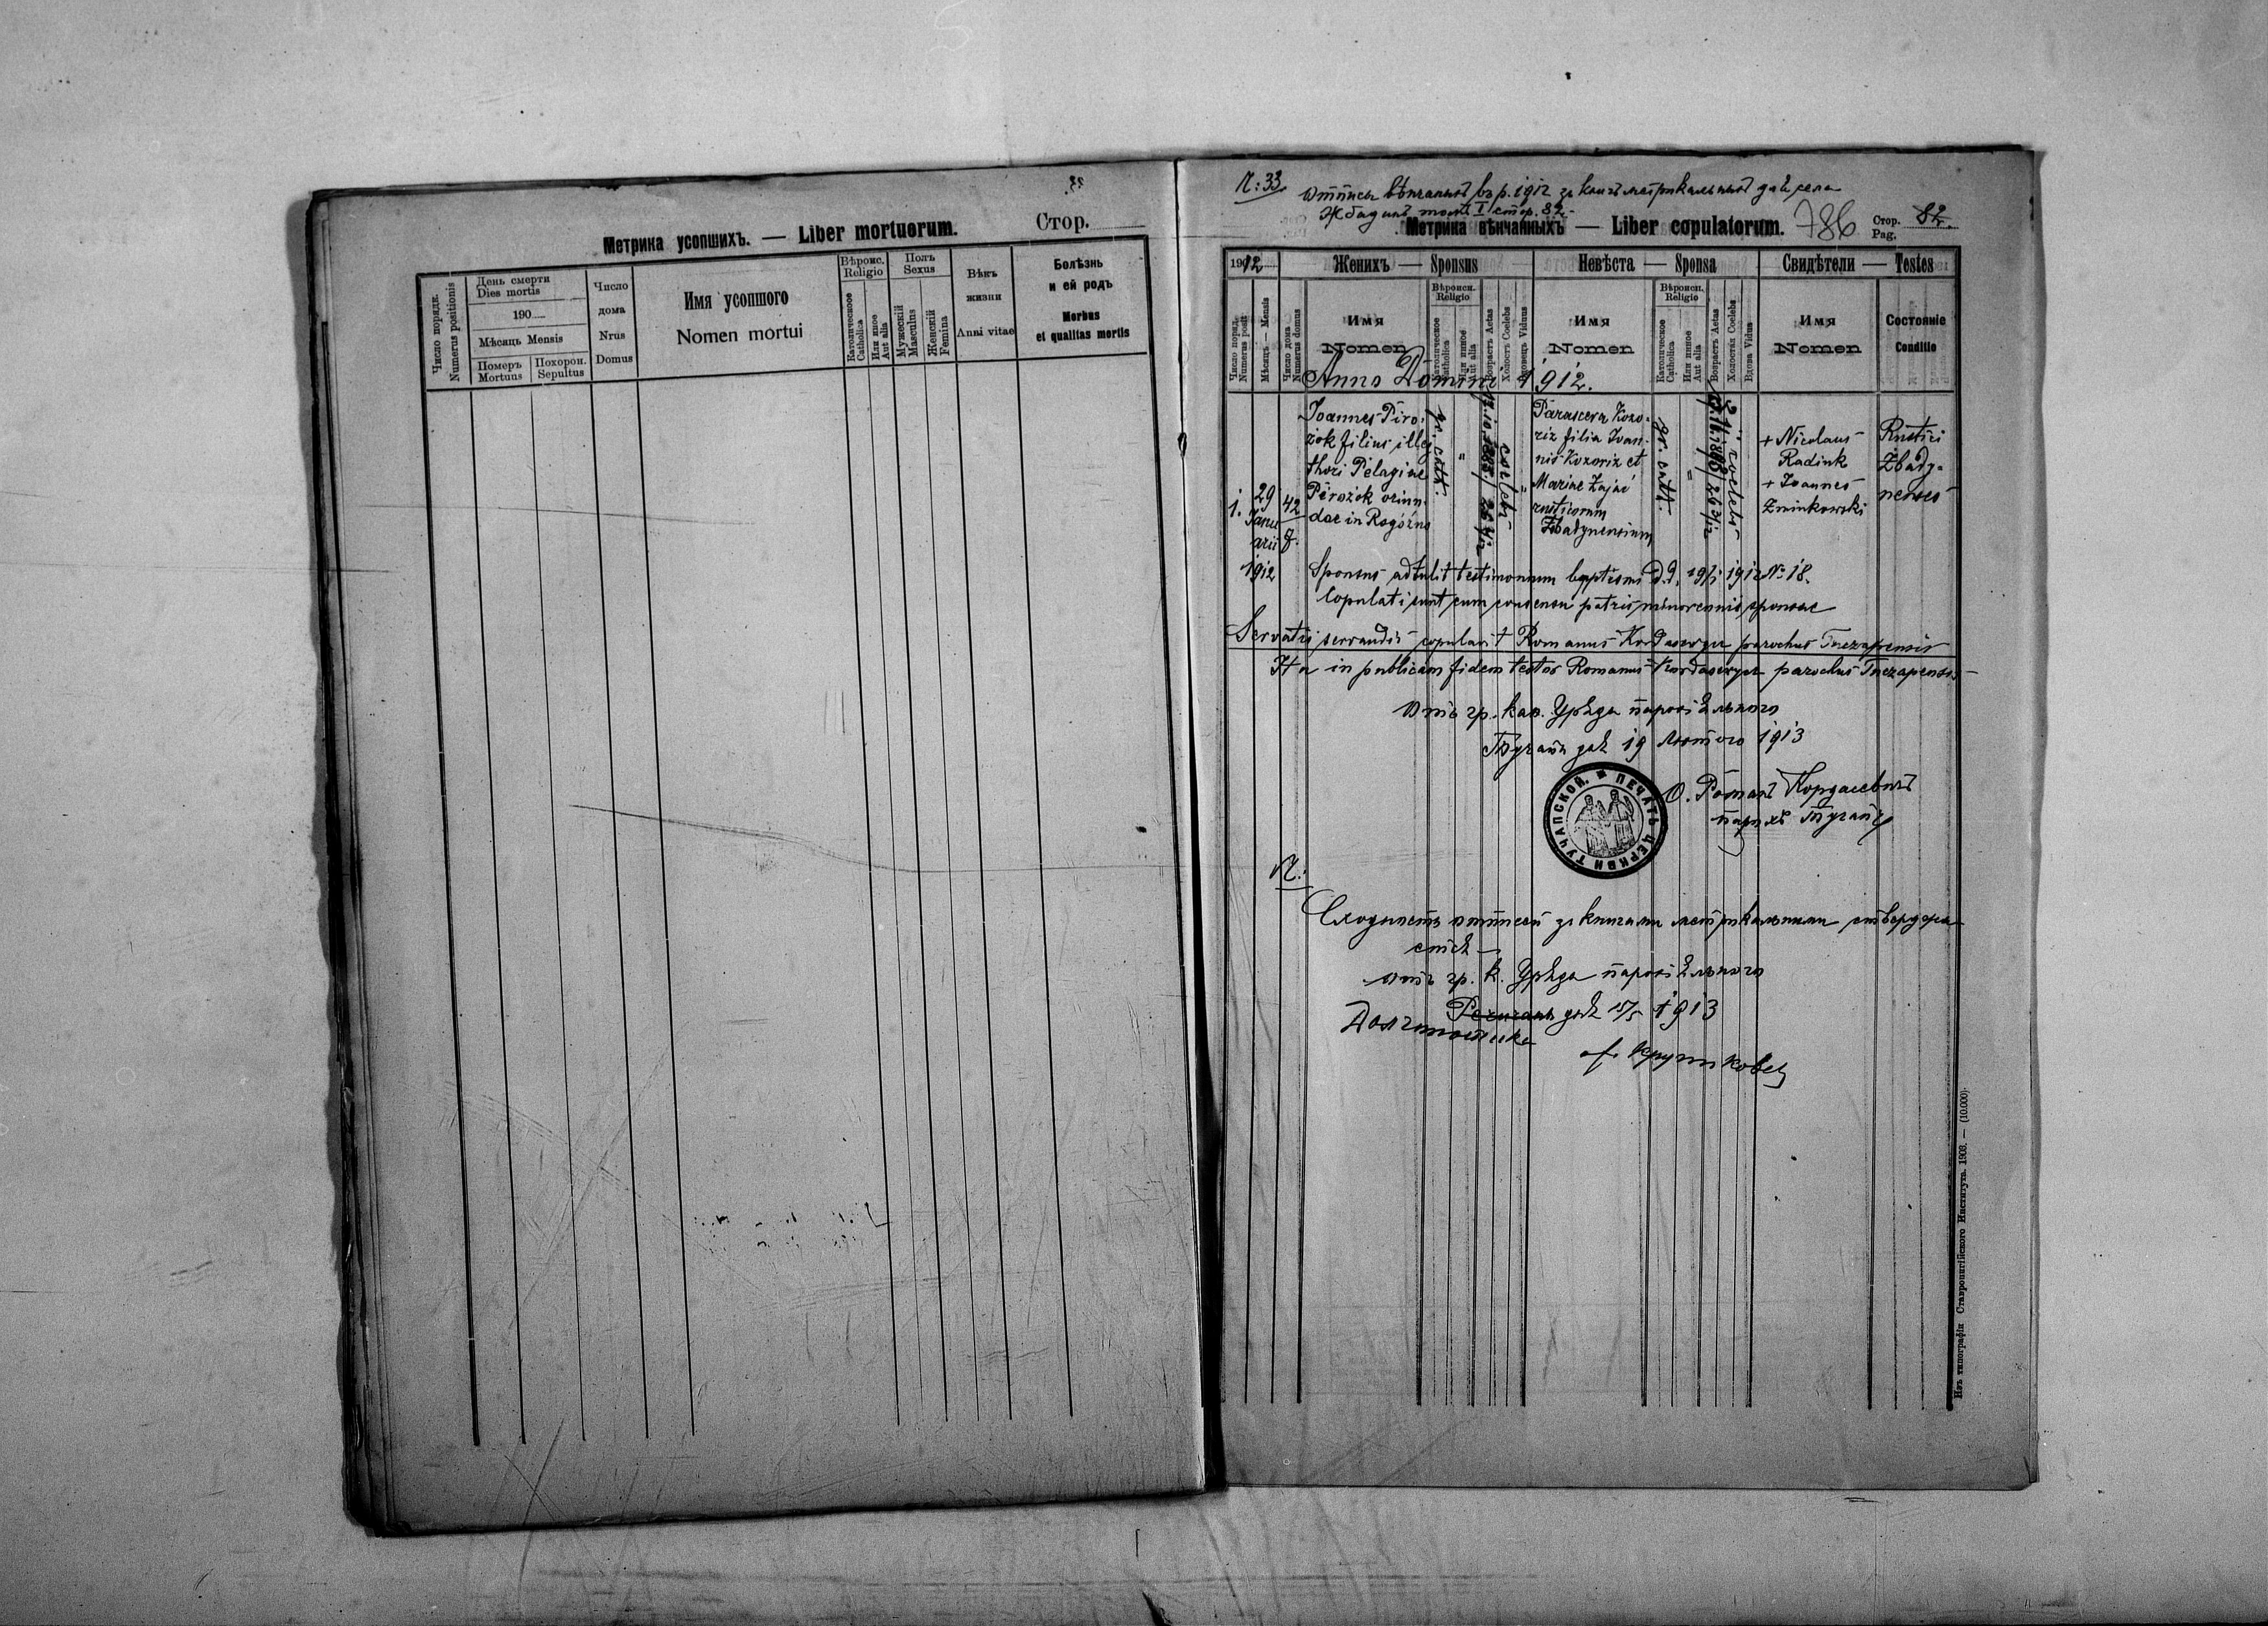 Стор.
Метрика усопшихъ. — Liber mortuorum.
Число порядк.
Numerus positionis
День смерти
Dies mortis
190
Мѣсяць Mensis
Померъ
Mortuus
Похорон.
Sepultus
Число
дома
Nrus
Domus
Имя усопшого
Nomen mortui
Вѣроис.
Religio
Католическое
Catholica
Или иное
Aut alia
Полъ
Sexus
Мужескій
Masculus
Женскій
Femina
Вѣкъ
жизни
Anni vitae
Болѣзнь
и ей родъ
Morbus
et qualitas mortis
Ч: 33
Отпись вѣнчаныхъ въ р. 1912 зъ книгъ метрикальныхъ для села
Жбадинъ томъ I стор. 82.
Метрика вѣнчанныхъ — Liber copulatorum.
786
Стор.
Pag.
82.
1912
Женихъ — Sponsus
Невѣста — Sponsa
Свидѣтели — Testes
Число поряд.
Numerus posit
Мѣсяць — Mensis
Число дома
Numerus domus
Имя
Nomen
Вѣроисп.
Religio
Католическое
Catholica
Или иное
Aut alia
Возрастъ Aetas
Холостъ Coelebs
Вдовецъ Viduus
Имя
Nomen
Вѣроисп.
Religio
Католическое
Catholica
Или иное
Aut alia
Возрастъ Aetas
Холостая Coelebs
Вдова Vidua
Имя
Nomen
Состояніе
Conditio
Anno Domini 1912.
1.
29
Janu
arii
1912
42
Joannes Piro-
żok filius illeg.
thori Pelagiae
Pirożok oriun-
dae in Rogóźno
gr. cath.
"
coelebs
Parascera Kozo-
riz filia Ioan-
nis Kozoriz et
Mariae Zając
rusticorum
Żbadynensium
gr. cath.
"
coelebs
+ Nicolaus
Radink
+ Joannes
Zminkowski
Rustici
Żbady-
nenses
Sponsus adtulit testimonium baptismi d.d. 19/1 1912 № 18.
Copulati sunt cum consensu patris minorennis sponsae
Servatis servandis copulavit Romanus Kordasewycz parochus Tuczapensis
Ita in publicam fidem testor Romanus Kordasewycz parochus Tuczapensis
Отъ гр. каѳ. Уряда парохіяльного
Тучапы дня 19 Лютого 1913
ПЕЧАТЬ ЦЕРКВИ ТУЧАПСКОЙ.
О. Романъ Кордасевичъ
парохъ Тучапъ
Ч:
Сходность отписи зъ книгами метрикальными стверджа-
єтся —
отъ гр. к. Уряда парохіяльного
дня 1913
Долгомостиска
Изъ типографіи Ставропигійского Института. 1909. — (10.000)